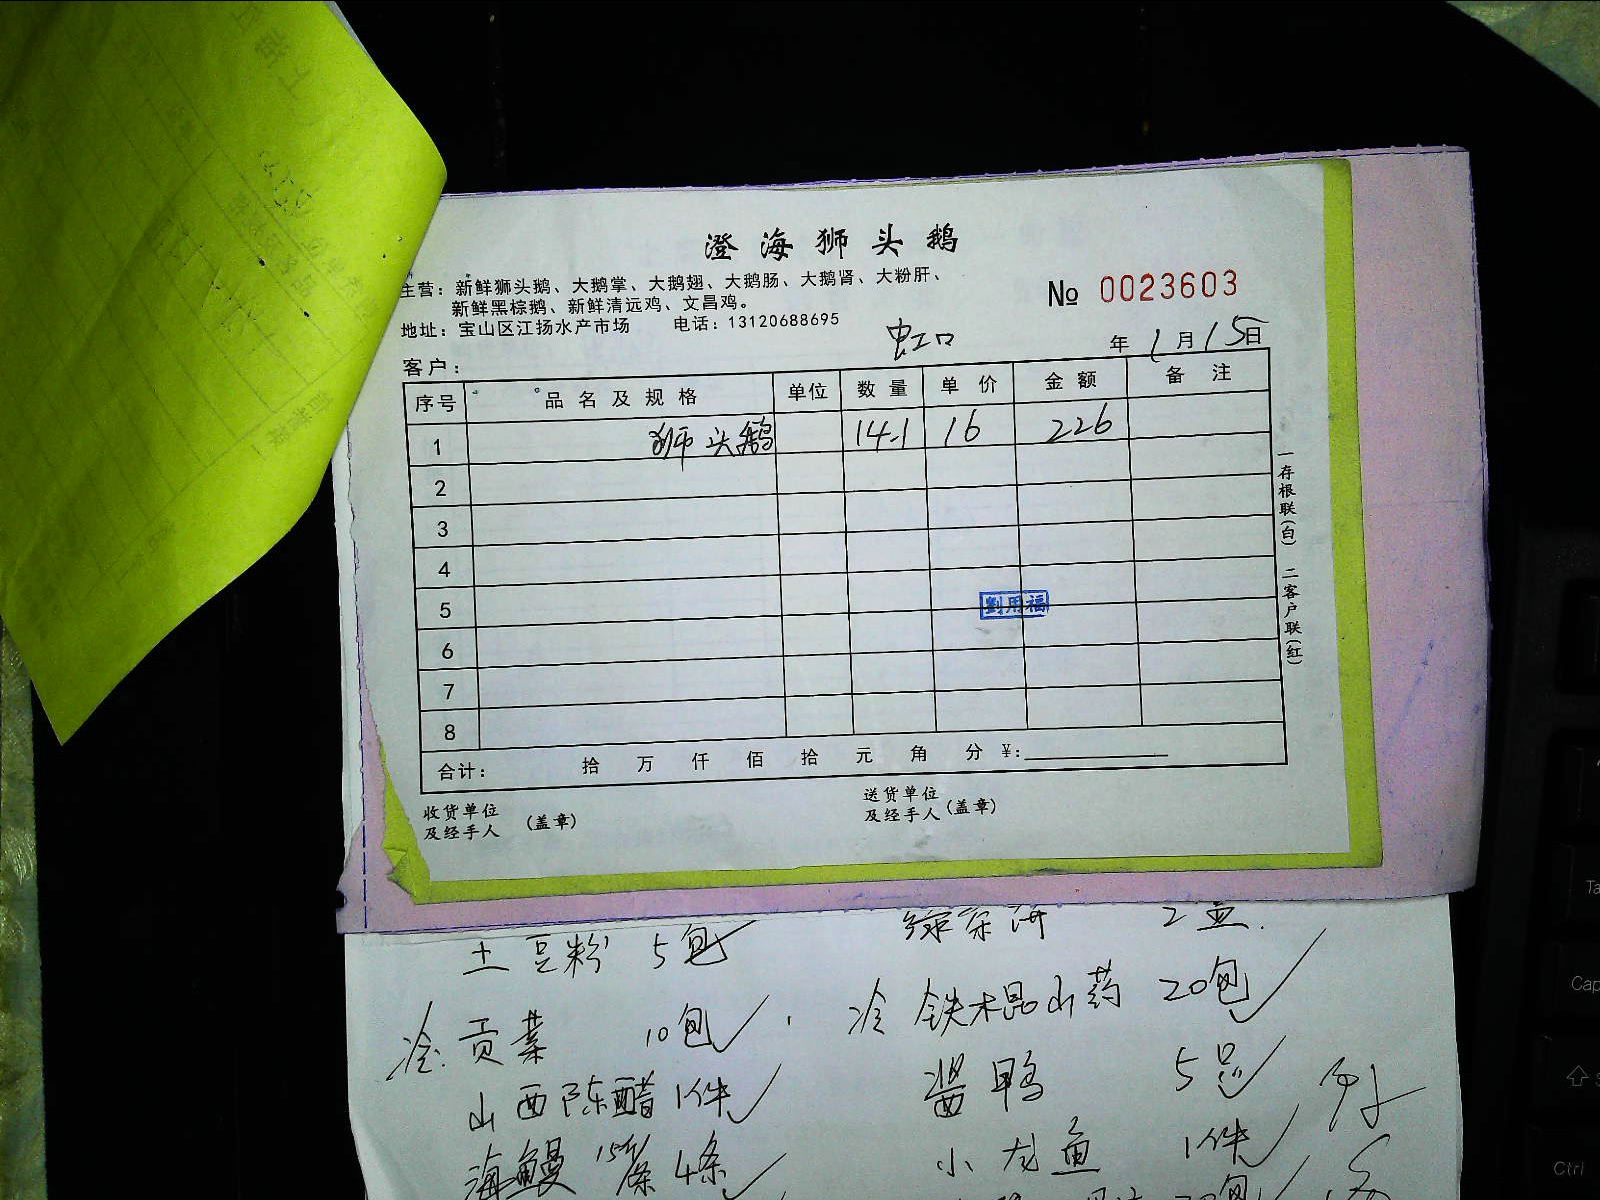 澄海狮头鹅
主营：新鲜狮头鹅、大鹅掌、大鹅翅、大鹅肠、大鹅肾、大粉肝、
新鲜黑棕鹅、新鲜清远鸡、文昌鸡。
№ 0023603
地址：宝山区江扬水产市场 电话：13120688695
虹口
客户： 年 1月15日
序号 品名及规格 单位 数量 单价 金额 备注
1 狮头鹅 14.1 16 226
2
3
4
5
劉用福
6
7
8
合计： 拾 万 仟 佰 拾 元 角 分 ¥：
一存根联（白） 二客户联（红）
收货单位及经手人（盖章） 送货单位及经手人（盖章）
土豆粉 5包 2盒.
冷.贡菜 10包 冷 铁木昆山药 20包
山西陈醋 1件 酱鸭 5只
海鳗 4条 小龙鱼 1件
Cap
Ctrl